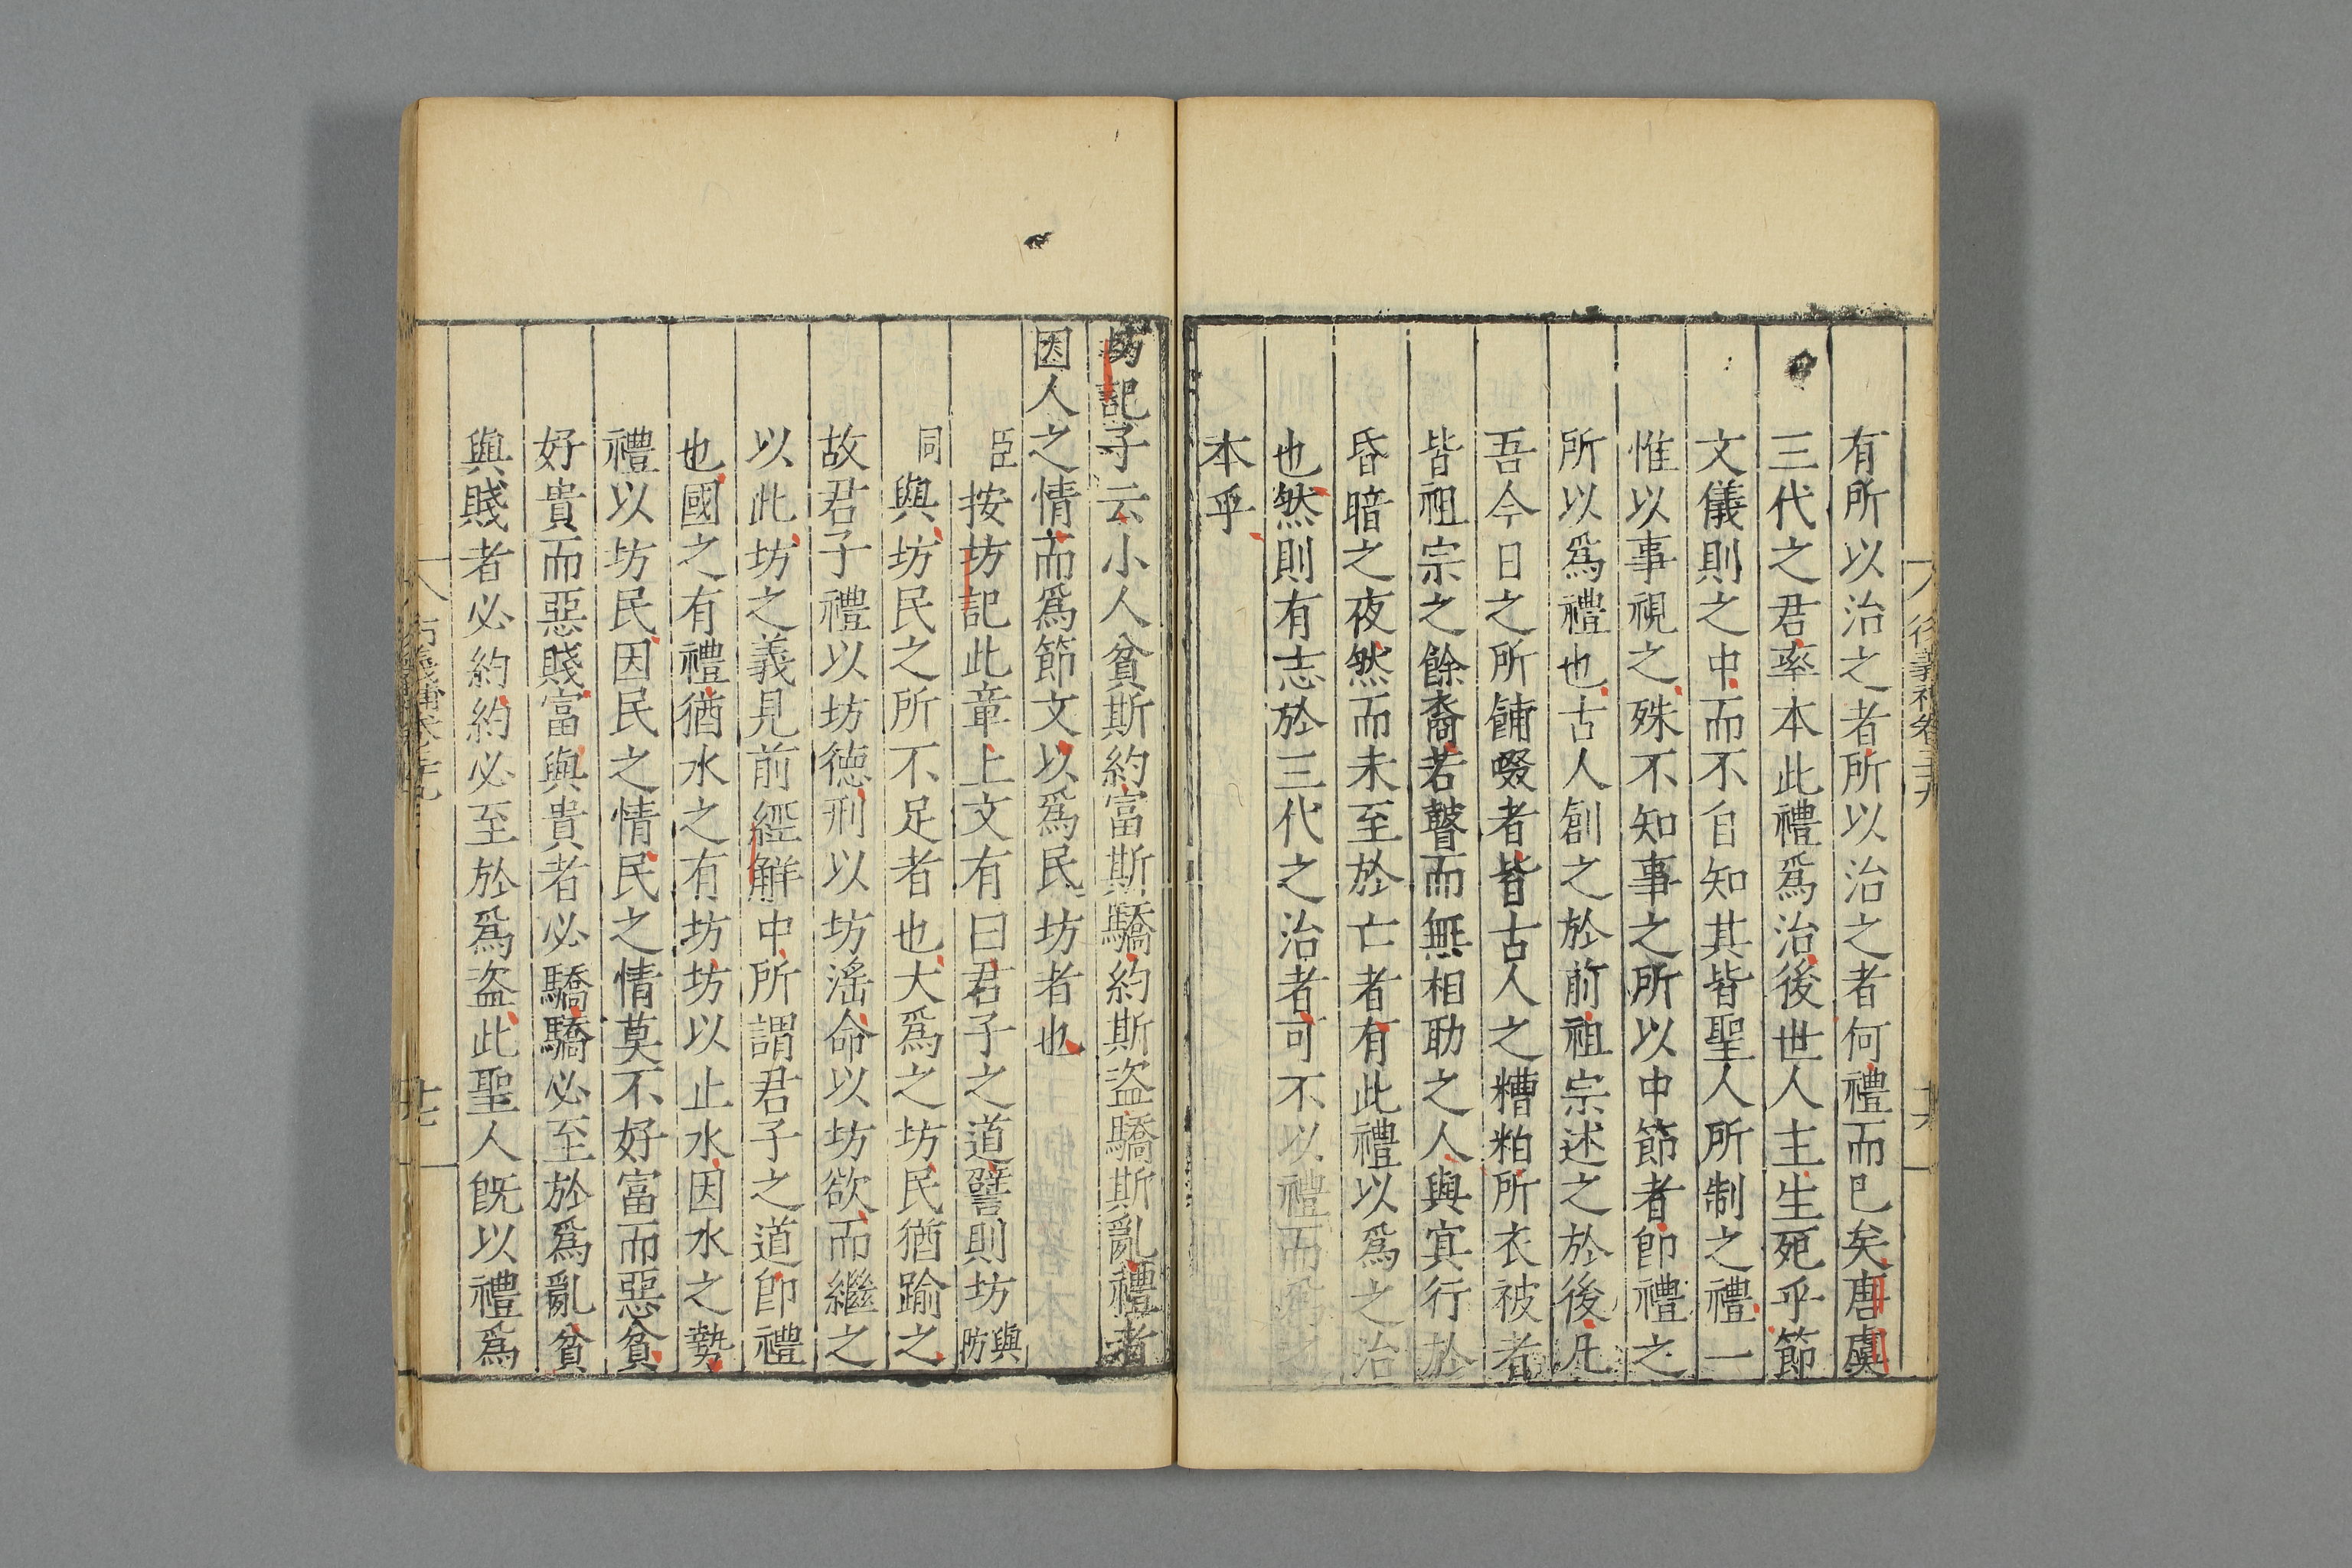 有所以治之者所以治之者何禮而已矣唐虞
三代之君率本此禮爲治後世人主生死乎節
文儀則之中而不自知其皆聖人所制之禮一
惟以事視之殊不知事之所以中節者即禮之
所以爲禮也古人創之於前祖宗述之於後凡
吾今日之所餔啜者皆古人之糟粕所衣被者
皆祖宗之餘裔若瞽而無相助之人與㝠行於
昏暗之夜然而未至於亡者有此禮以爲之治
也然則有志於三代之治者可不以禮而爲之
本乎
坊記子云小人貧斯約富斯驕約斯盜驕斯亂禮者
因人之情而爲節文以爲民坊者也
臣按坊記此章上文有曰君子之道譬則坊與防
同與坊民之所不足者也大爲之坊民猶踰之
故君子禮以坊德刑以坊淫命以坊欲而繼之
以此坊之義見前經解中所謂君子之道即禮
也國之有禮猶水之有坊坊以止水因水之勢
禮以坊民因民之情民之情莫不好富而惡貧
好貴而惡賤富與貴者必驕驕必至於爲亂貧
與賤者必約約必至於爲盜此聖人旣以禮爲